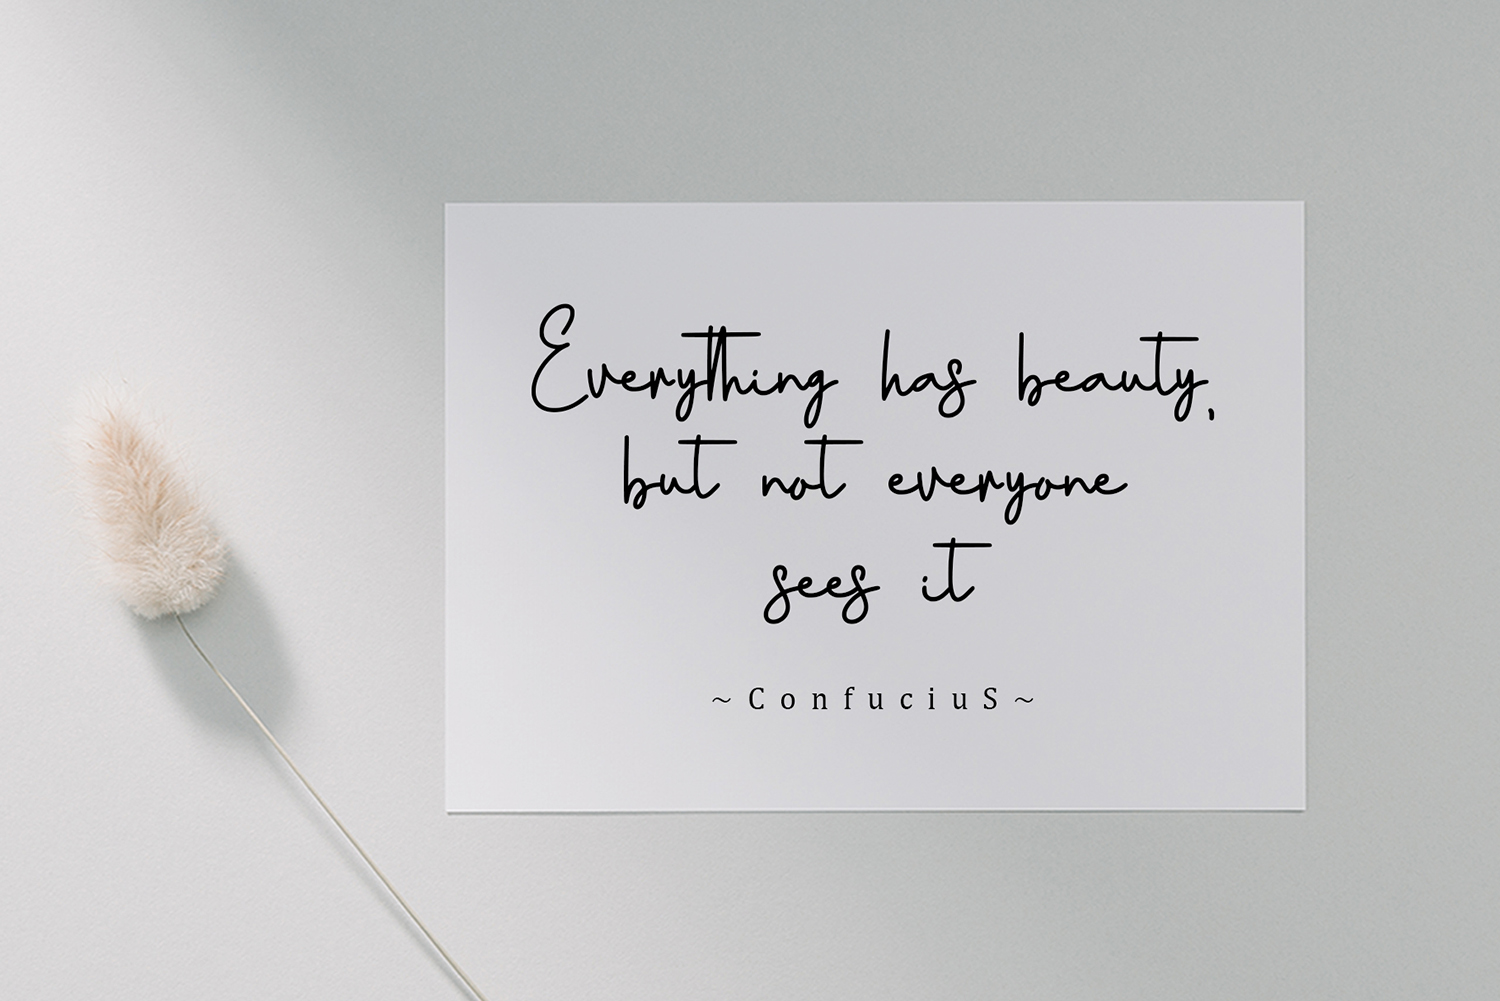 Everything has beauty,
but not everyone
sees it
~ConfuciuS~